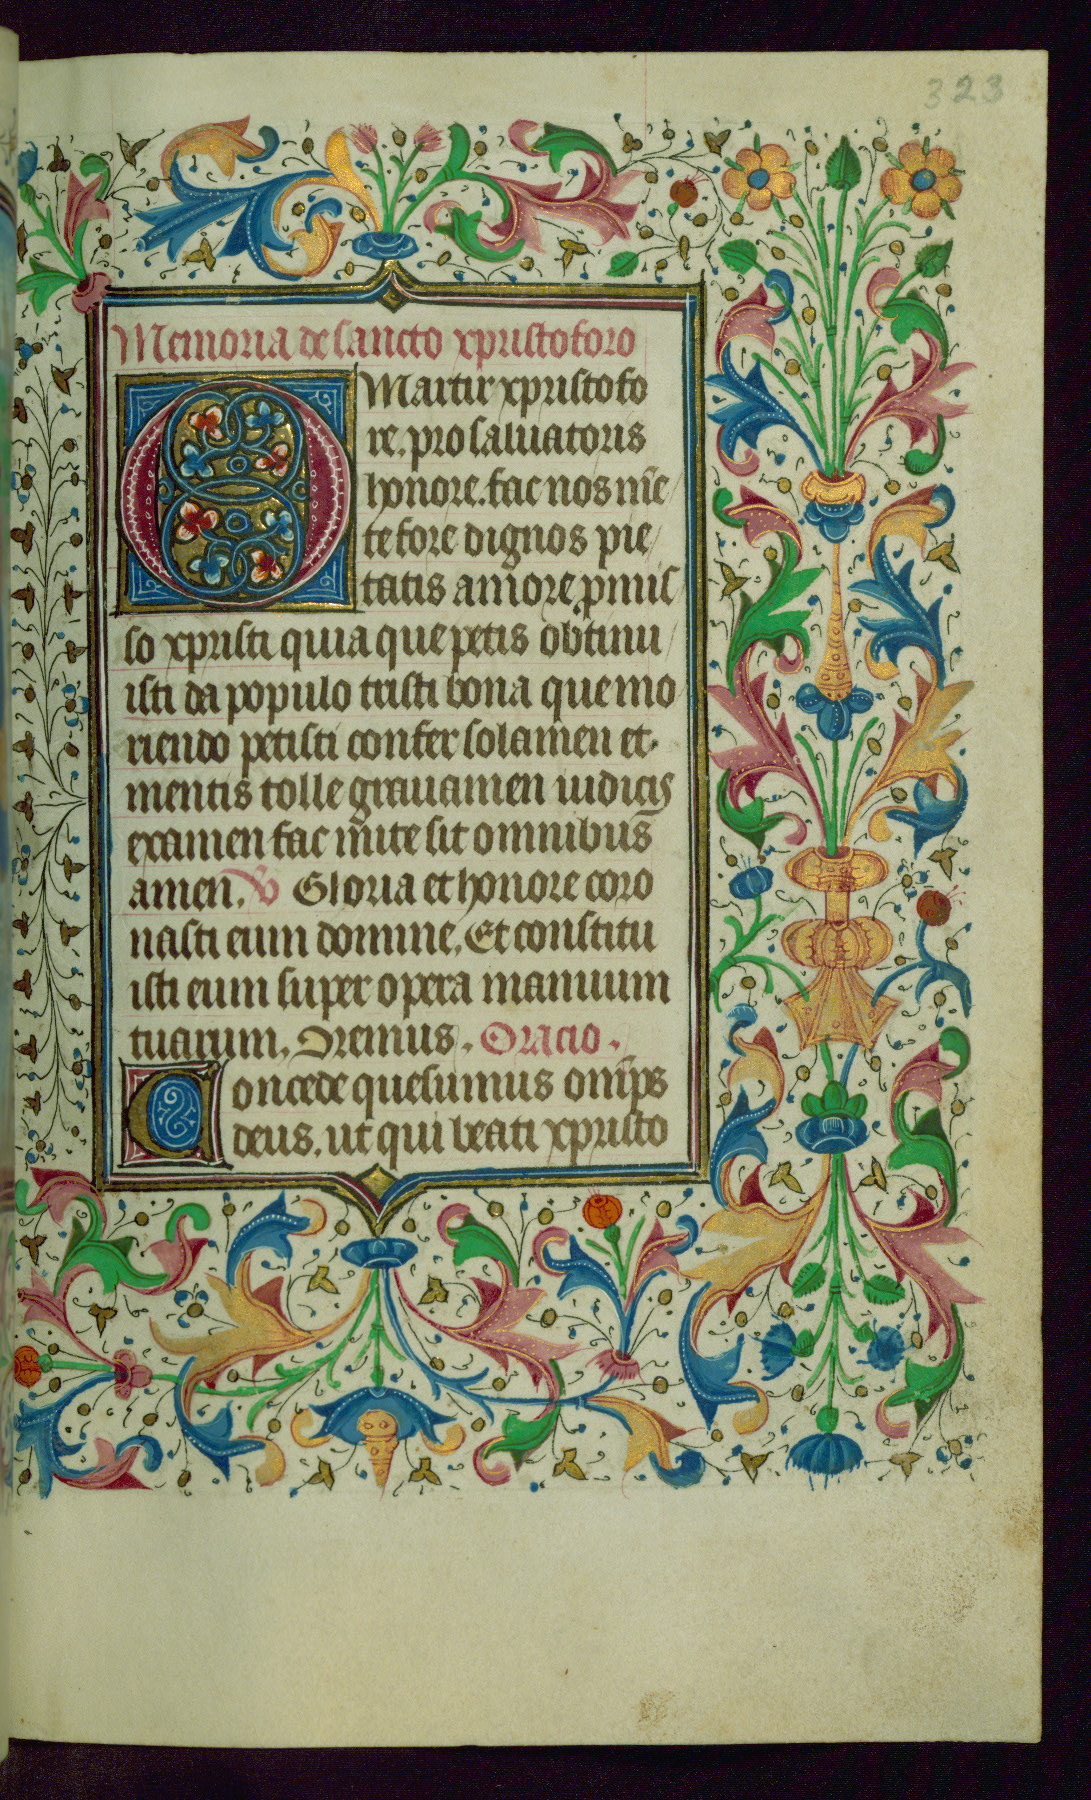 323
Memoria de sancto xpristoforo
O Martir xpristofo
re. pro saluatoris
honore. fac nos mēte
te fore dignos pie
tatis amore pmis
so xpristi quia que petis obtinu
isti da populo tristi bona que mo
riendo petisti confer solamen et
mentis tolle grauamen iudicis
examen fac mite sit omnibus
amen. V Gloria et honore coro
nasti eum domine. Et constitu
isti eum super opera manuum
tuarum. Oremus. Oracio.
Concede quesumus omps
deus. ut qui beati xpristo